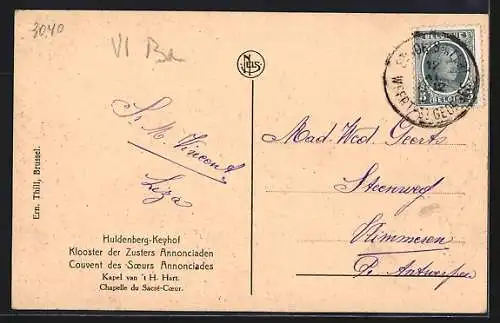 3040
VI
Ern. Thill, Brussel.
S. M. Vincent
Liza
Huldenberg-Keyhof
Klooster der Zusters Annonciaden
Couvent des Sœurs Annonciades
Kapel van 't H. Hart.
Chapelle du Sacré-Cœur.
NELS
BELGIQUE
5 BELGIË 5
WEERT-ST-GEORGES
Mad. Wed. Geerts
Steenweg
Vlimmeren
Pr. Antwerpen